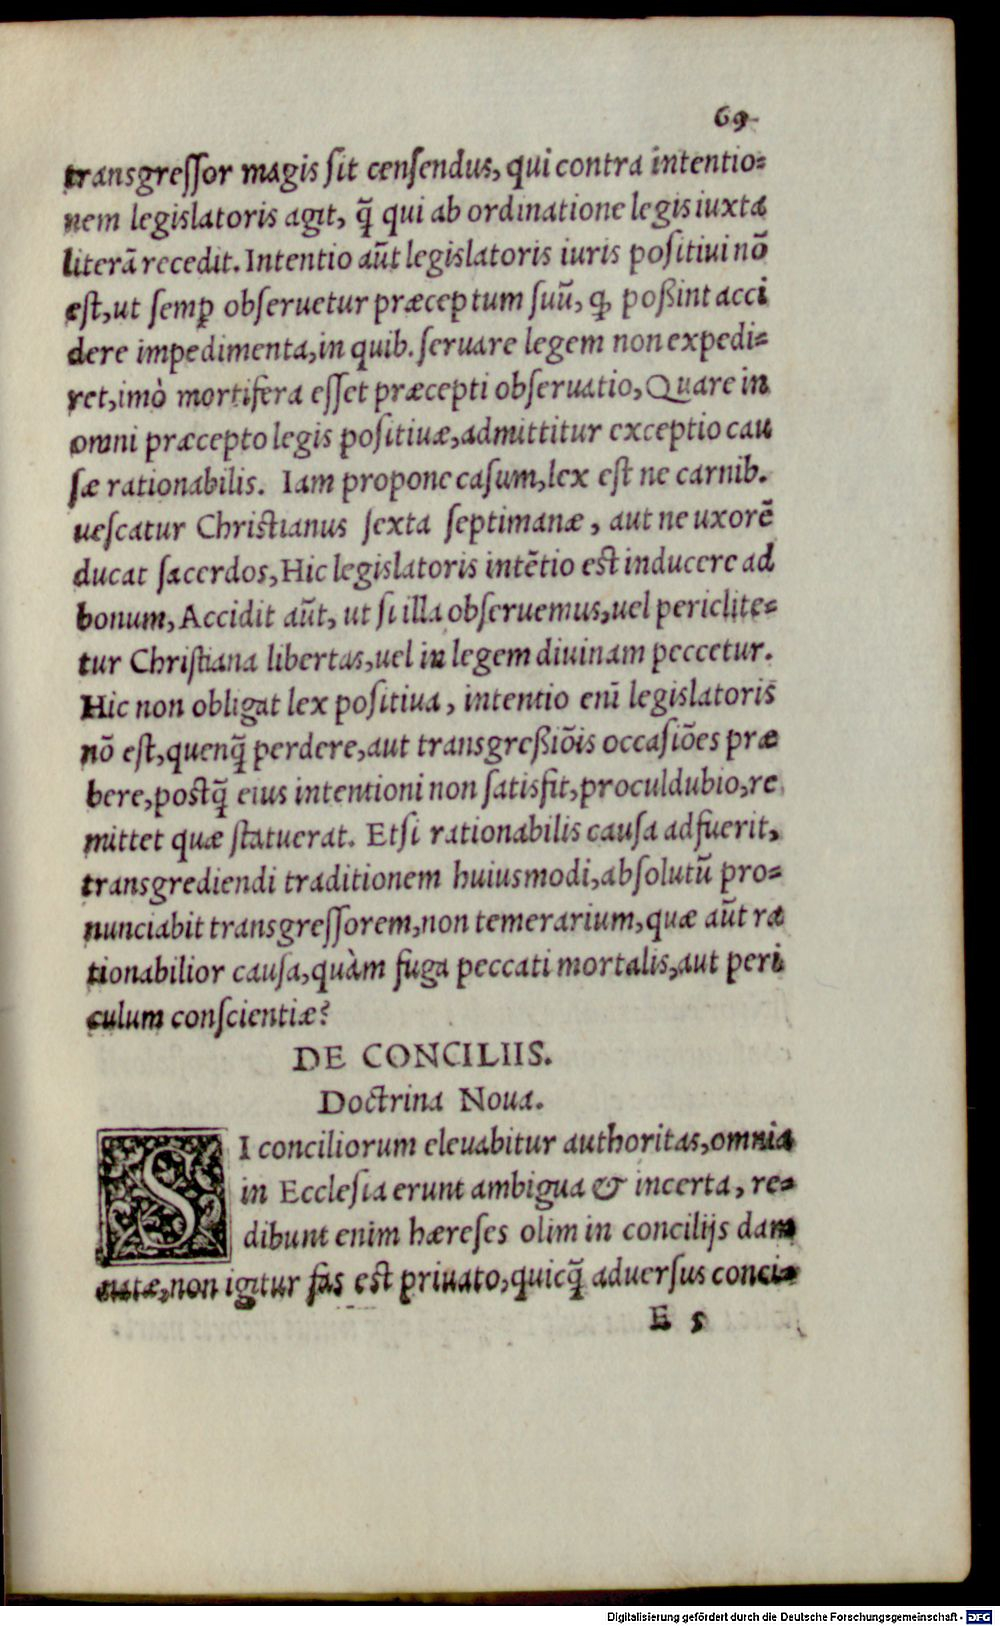 69
transgreſſor magis ſit cenſendus, qui contra intentio=
nem legislatoris agit, q̃ qui ab ordinatione legis iuxta
literã recedit. Intentio aũt legislatoris iuris poſitiui nõ
eſt, ut ſemꝑ obſeruetur præceptum ſuũ, ꝙ poßint acci
dere impedimenta, in quib. ſeruare legem non expedi=
ret, imò mortifera eſſet præcepti obſeruatio, Quare in
omni præcepto legis poſitiuæ, admittitur exceptio cau
ſæ rationabilis. Iam propone caſum, lex eſt ne carnib.
ueſcatur Chriſtianus ſexta ſeptimanæ, aut ne uxorẽ
ducat ſacerdos, Hic legislatoris intẽtio eſt inducere ad
bonum, Accidit aũt, ut ſi illa obſeruemus, uel periclite=
tur Chriſtiana libertas, uel in legem diuinam peccetur.
Hic non obligat lex poſitiua, intentio enĩ legislatoris
nõ eſt, quenq̃ perdere, aut transgreßiõis occaſiões præ
bere, poſtq̃ eius intentioni non ſatisfit, proculdubio, re
mittet quæ ſtatuerat. Etſi rationabilis cauſa adfuerit,
transgrediendi traditionem huiusmodi, abſolutũ pro=
nunciabit transgreſſorem, non temerarium, quæ aũt ra
tionabilior cauſa, quàm fuga peccati mortalis, aut peri
culum conſcientiæ?
DE CONCILIIS.
Doctrina Noua.
SI conciliorum eleuabitur authoritas, omnia
in Eccleſia erunt ambigua & incerta, re=
dibunt enim hæreſes olim in concilijs dam
natæ, non igitur fas eſt priuato, quicq̃ aduerſus conci=
E 5
Digitalisierung gefördert durch die Deutsche Forschungsgemeinschaft - DFG